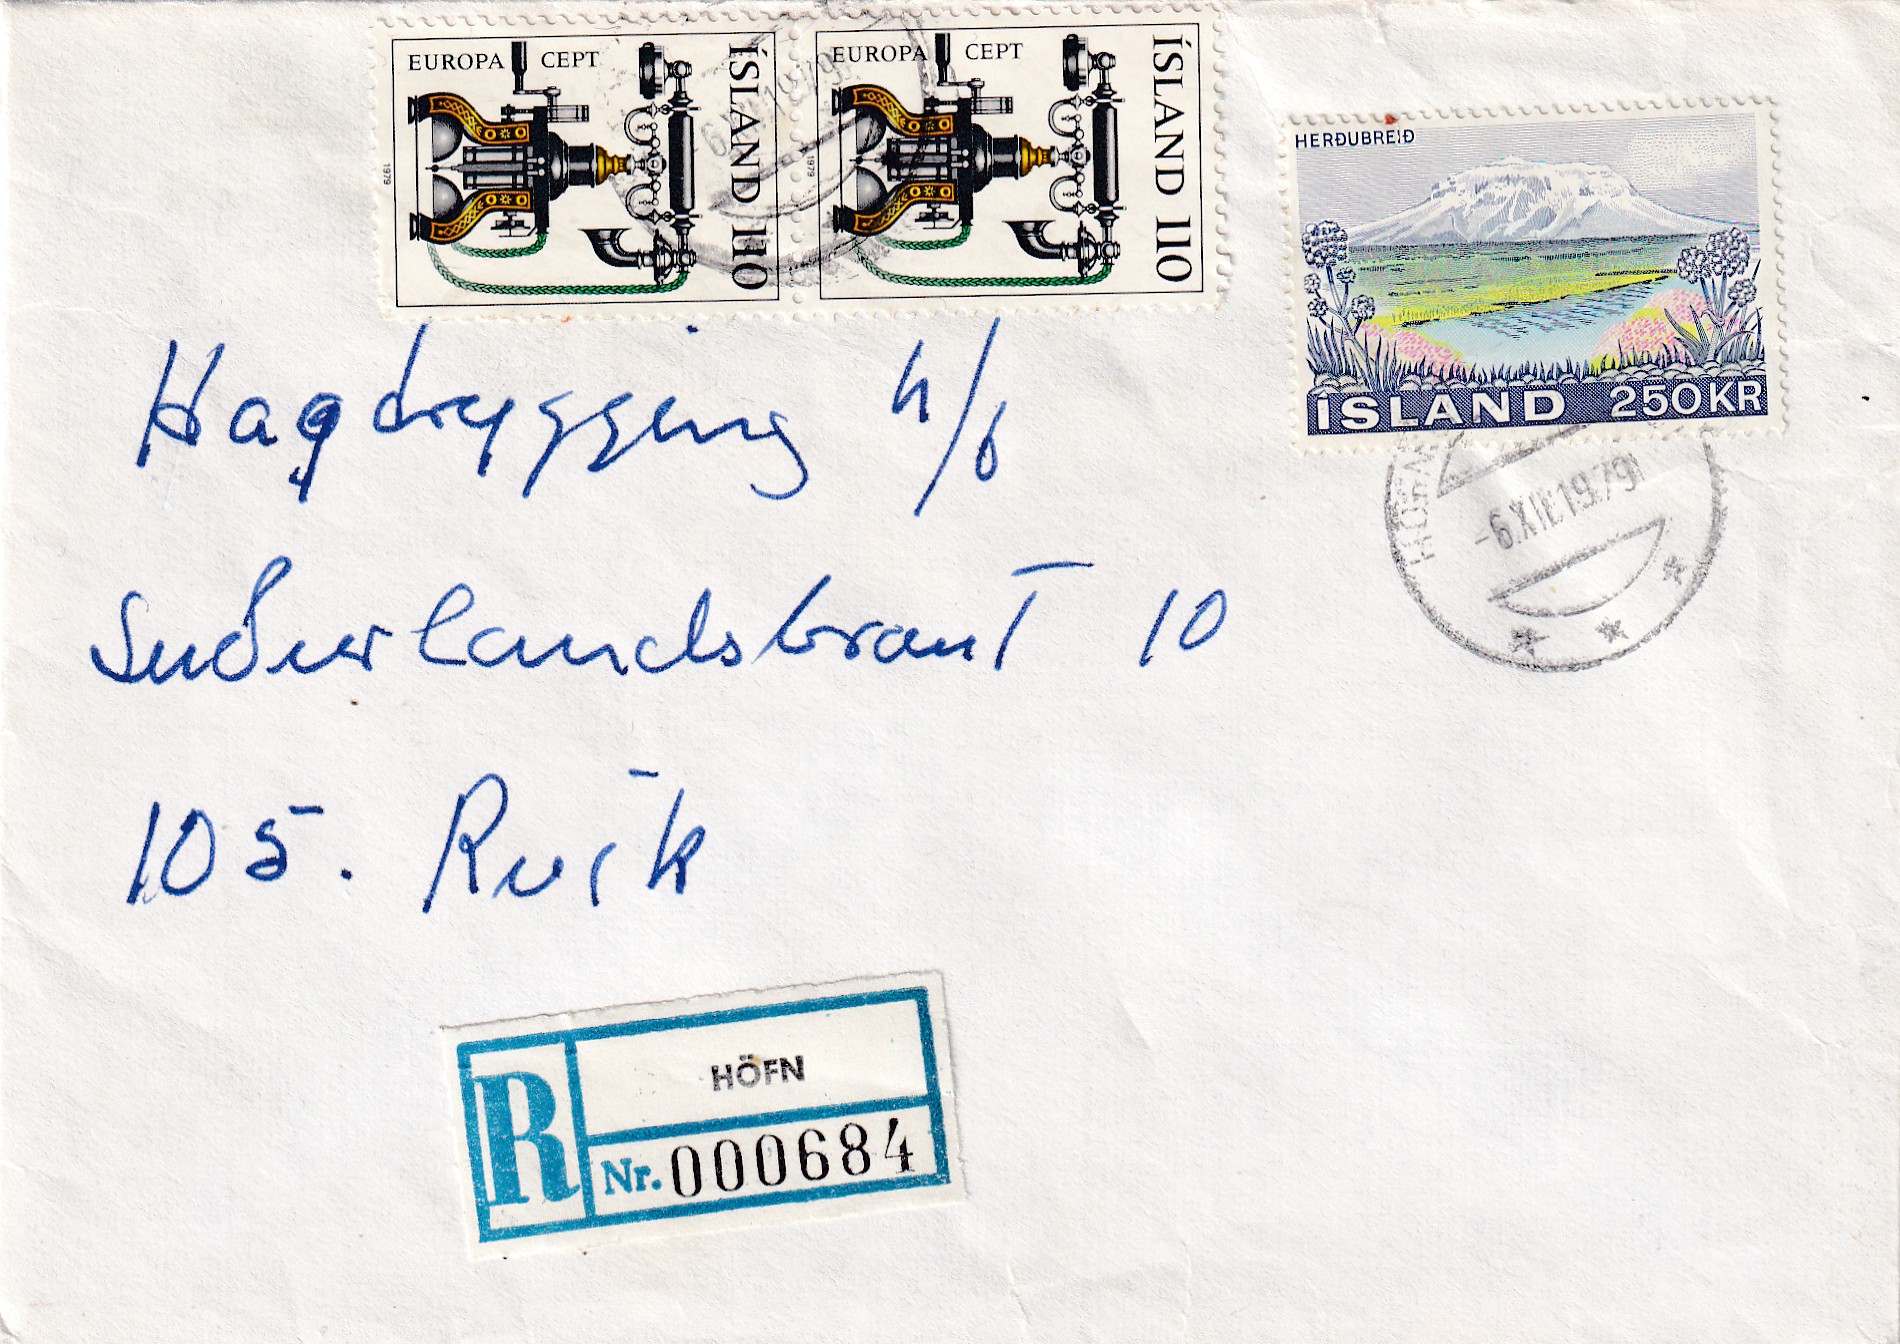 EUROPA CEPT
ÍSLAND 110
1979
EUROPA CEPT
ÍSLAND 110
1979
HERÐUBREIÐ
ÍSLAND 250KR
-6.XII.1979
Hagtrygging h/f
Suðurlandsbraut 10
105. Rvík
R
HÖFN
Nr. 000684